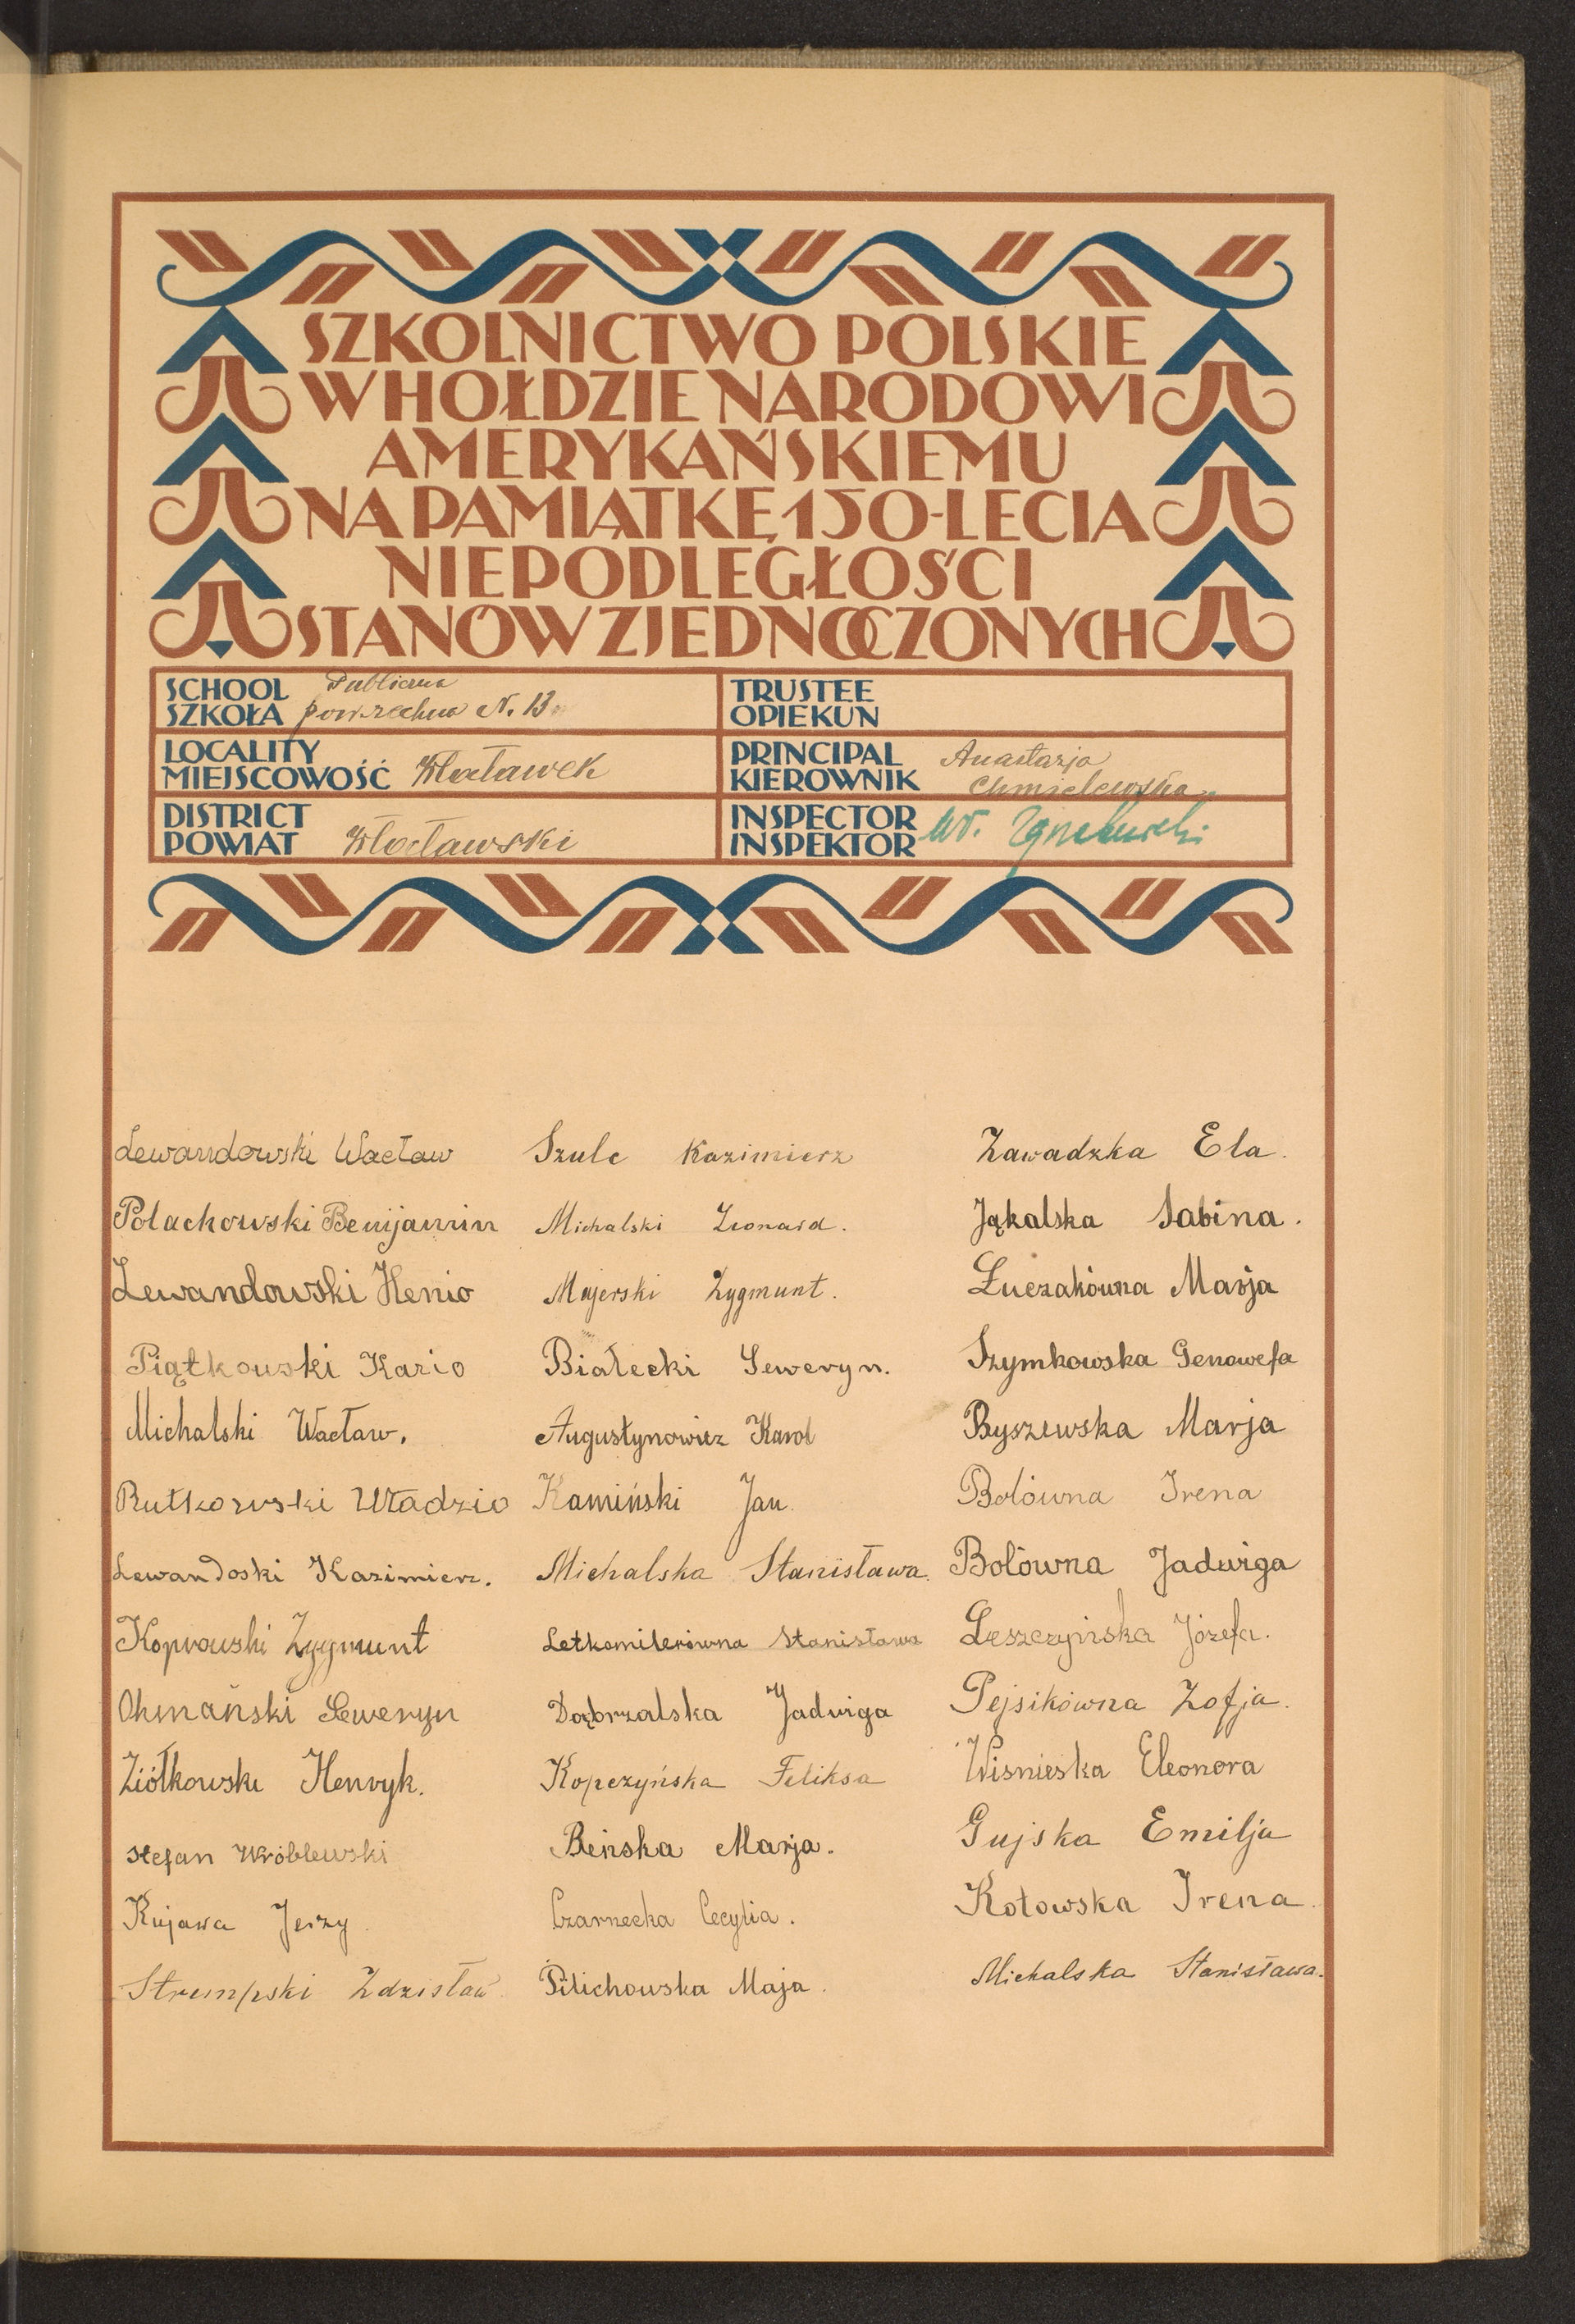 SZKOLNICTWO POLSKIE
W HOŁDZIE NARODOWI
AMERYKAŃSKIEMU
NA PAMIĄTKĘ 150-LECIA
NIEPODLEGŁOŚCI
STANÓW ZJEDNOCZONYCH
SCHOOL
SZKOŁA
Publiczna
powszechna N. 13
TRUSTEE
OPIEKUN
LOCALITY
MIEJSCOWOŚĆ
Włocławek
PRINCIPAL
KIEROWNIK
Anastazja
Chmielewska
DISTRICT
POWIAT
Włocławski
INSPECTOR
INSPEKTOR
Wł.
Lewandowski Wacław
Polachowski Benijamin
Lewandowski Henio
Piątkowski Kazio
Michalski Wacław.
Rutkowski Władzio
Lewandoski Kazimierz.
Koprowski Zygmunt
Ohmański Seweryn
Ziółkowski Henryk.
Stefan Wróblewski
Kujawa Jerzy
Strumpski Zdzisław
Szulc Kazimierz
Michalski Leonard.
Majerski Zygmunt.
Białecki Seweryn.
Augustynowicz Karol
Kamiński Jan
Michalska Stanisława.
Letkemilerówna Stanisława
Dąbrzalska Jadwiga
Kopczyńska Feliksa
Beńska Marja.
Czarnecka Cecylia.
Pilichowska Maja.
Zawadzka Ela.
Jąkalska Sabina.
Łuczakówna Marja
Szymkowska Genowefa
Byszewska Marja
Bolówna Irena
Bolówna Jadwiga
Leszczyńska Józefa.
Pejsikówna Zofja.
Wisnieska Eleonora
Gujska Emilja
Kotowska Irena.
Michalska Stanisława.